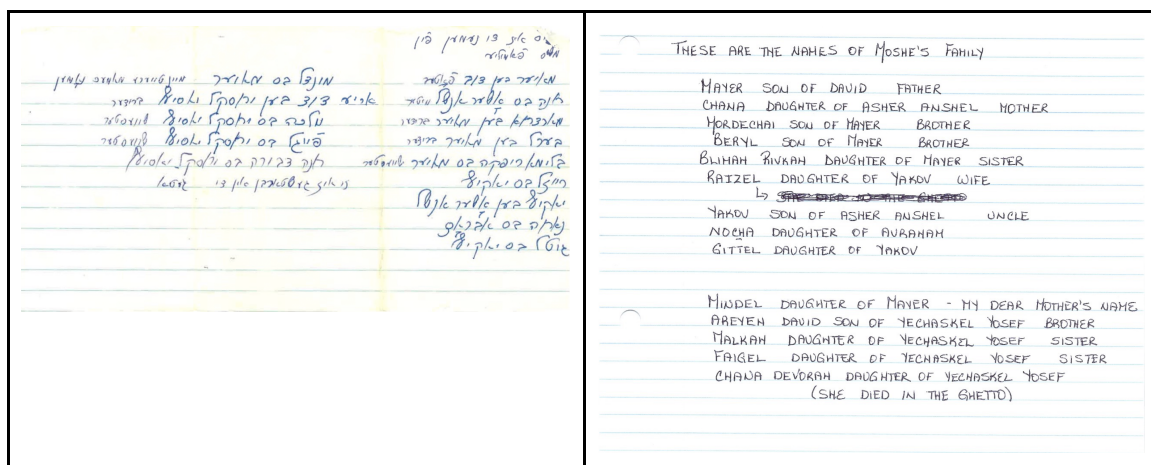 איז די נעמען פון
פאמיליע
מאיער בען דוד פאטער
חנה בס אשער אנשל מוטער
בען מאיער ברידער
בערל בען מאיער ברידער
בלימא ריפקה בס מאיער שוועסטער
רייזל בס
בען אשער אנשל
בס
גוטל בס
מונדל בס מאיער מיין טייערע מאמעס נאמען
אריע דוד בען יחסקל יאסיף ברידער
מלכה בס יחסקל יאסיף שוועסטער
פייגל בס יחסקל יאסיף שוועסטער
חנה דבורה בס יחסקל יאסיף
זי איז געשטארבן אין די געטא
THESE ARE THE NAMES OF MOSHE'S FAMILY
MAYER SON OF DAVID FATHER
CHANA DAUGHTER OF ASHER ANSHEL MOTHER
MORDECHAI SON OF MAYER BROTHER
BERYL SON OF MAYER BROTHER
BLIMAH RIVKAH DAUGHTER OF MAYER SISTER
RAIZEL DAUGHTER OF YAKOV WIFE
YAKOV SON OF ASHER ANSHEL UNCLE
NOCHA DAUGHTER OF AVRAHAM
GITTEL DAUGHTER OF YAKOV
MINDEL DAUGHTER OF MAYER - MY DEAR MOTHER'S NAME
AREYEH DAVID SON OF YECHASKEL YOSEF BROTHER
MALKAH DAUGHTER OF YECHASKEL YOSEF SISTER
FAIGEL DAUGHTER OF YECHASKEL YOSEF SISTER
CHANA DEVORAH DAUGHTER OF YECHASKEL YOSEF
(SHE DIED IN THE GHETTO)